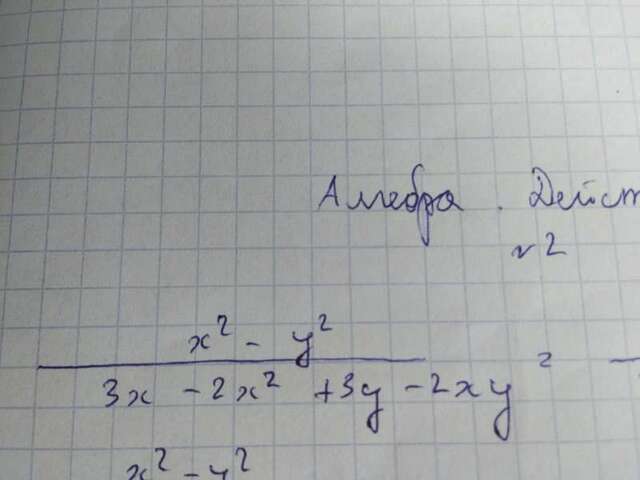 Алгебра. Дейст
№2
x² - y²
3x - 2x² + 3y - 2xy =
x² - y²